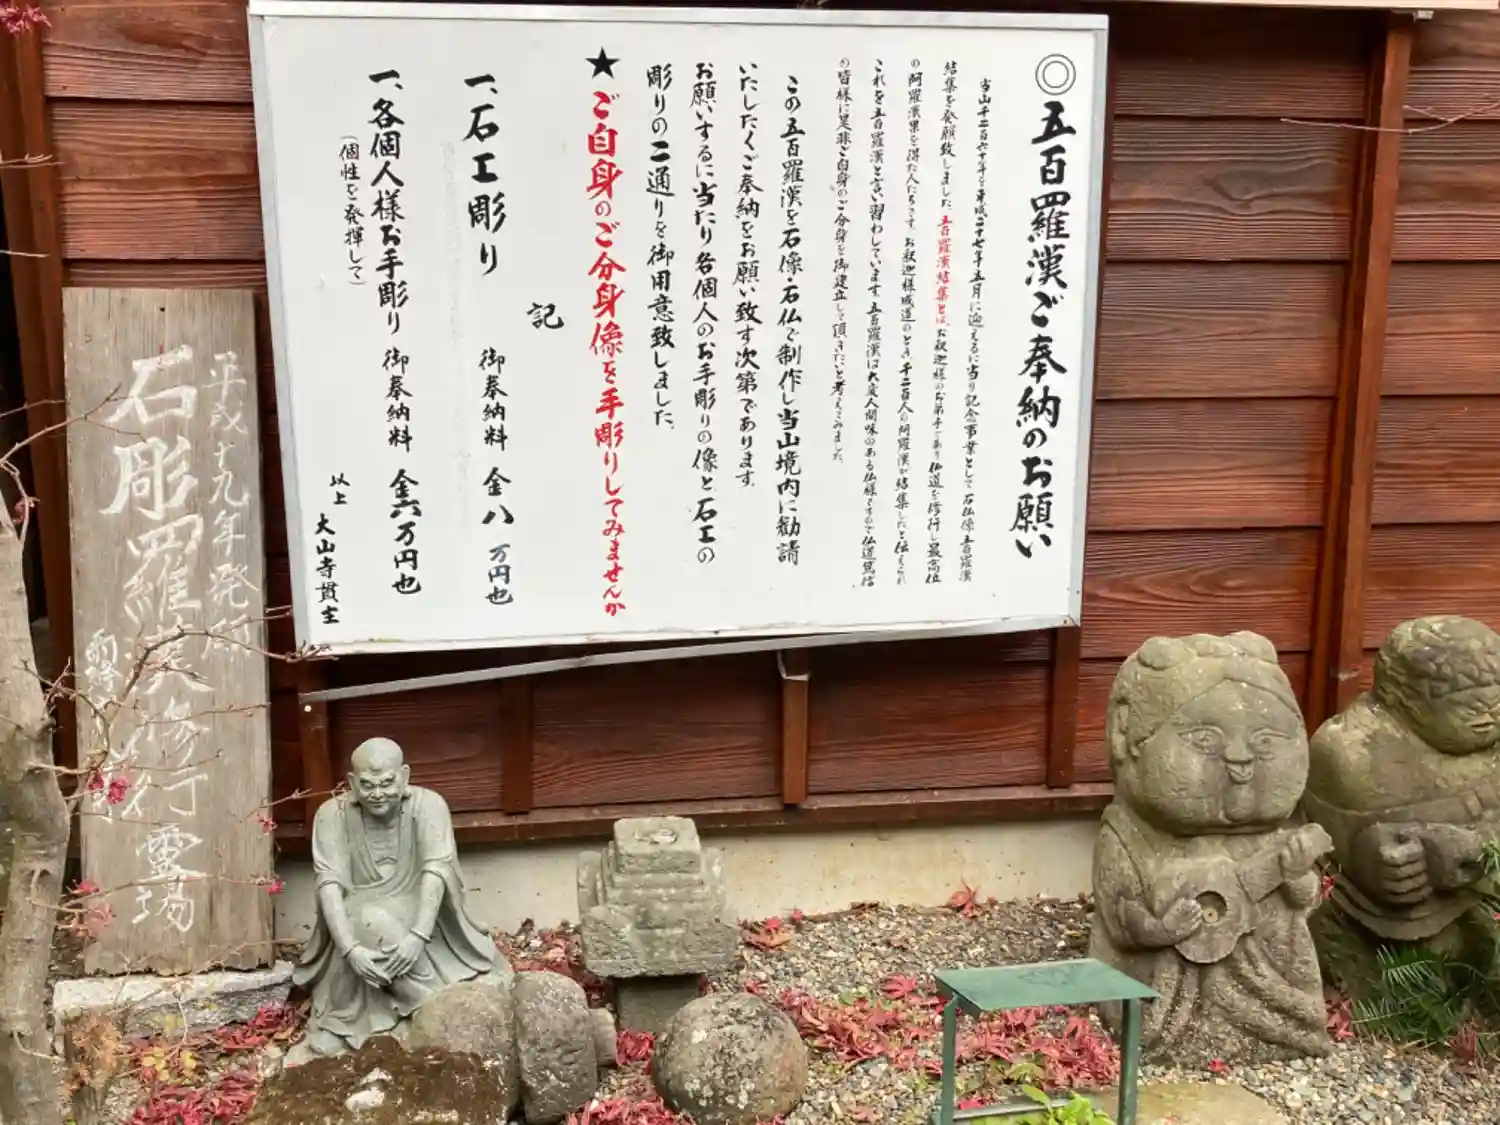 ◎五百羅漢ご奉納のお願い
当山千二百六十年を平成二十七年五月に迎えるに当り記念事業として石仏像五百羅漢
結集を発願致しました。五百羅漢結集とは、お釈迦様のお弟子であり仏道を修行し最高位
の阿羅漢果を得た人たちです。お釈迦様成道のとき、千二百人の阿羅漢が結集したと伝えられ
これを五百羅漢と言い習わしています。五百羅漢は大変人間味のある仏様ですので仏道篤信
の皆様に是非ご自身のご分身を御建立して頂きたいと考えてみました。
この五百羅漢を石像・石仏で制作し当山境内に勧請
いたしたくご奉納をお願い致す次第であります。
お願いするに当たり各個人のお手彫りの像と、石工の
彫りの二通りを御用意致しました。
★ご自身のご分身像を手彫りしてみませんか
記
一、石工彫り 御奉納料 金八万円也
一、各個人様お手彫り 御奉納料 金六万円也
(個性を発揮して)
以上 大山寺貫主
平成十九年発願
石彫羅漢修行霊場